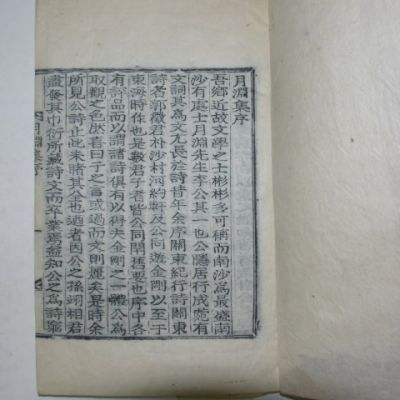 月淵集序
吾鄉近故文學之士彬彬多可稱而南沙爲最盛南
沙有處士月淵先生李公其一也公隱居行成蔬有
文詞其爲文尤長於詩昔年余序關東紀行詩關東
詩者郭徵君朴沙村河約軒及公同遊金剛以至于
東海時作也是數君子者皆公同閈舊要也序中各
有評品而以謂諸詩俱有以得夫金剛之一體公爲
取觀之色然喜曰子之言或過而文則遲矣是時余
所見公詩止此未睹其全也迺者因公之孫翊相君
盡發其巾衍所藏詩文而卒業焉益知公之爲詩
月淵集序
一